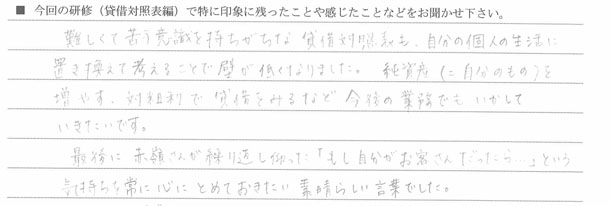 ■ 今回の研修(貸借対照表編)で特に印象に残ったことや感じたことなどをお聞かせ下さい。
難しくて苦う意識を持ちがちな貸借対照表も、自分の個人の生活に
置き換えて考えることで壁が低くなりました。純資産(=自分のもの)を
増やす、対粗利で貸借をみるなど今後の業務でもいかして
いきたいです。
最後に赤嶺さんが繰り返し仰った「もし自分がお客さんだったら…」という
気持ちを常に心にとめておきたい素晴らしい言葉でした。